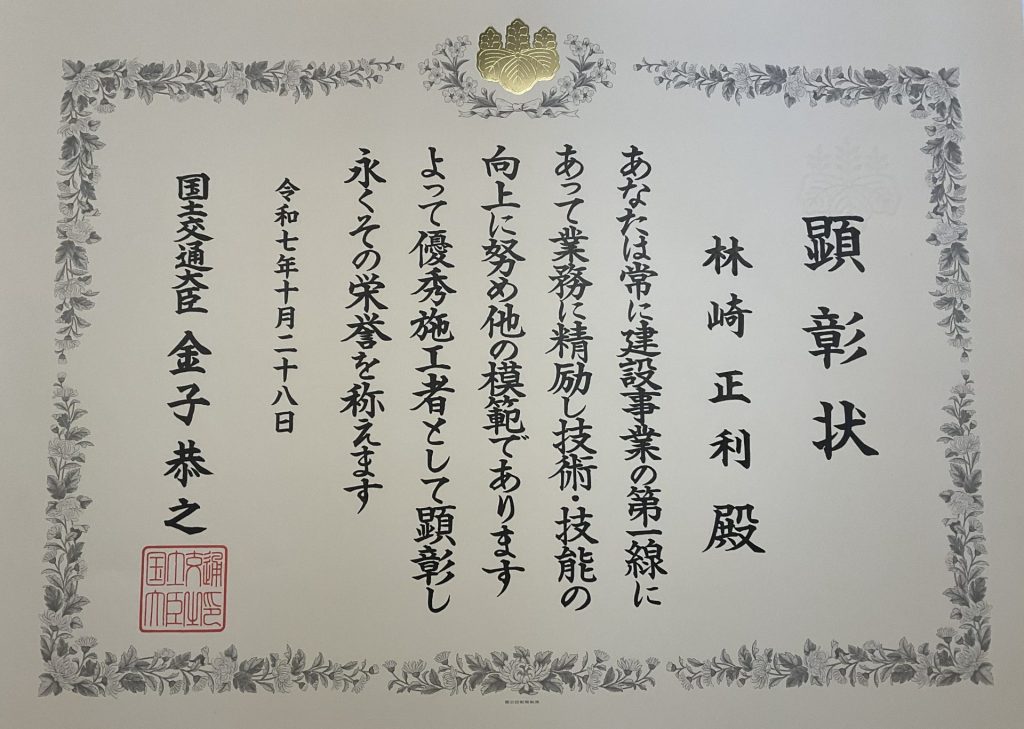 顕彰状
林崎正利殿
あなたは常に建設事業の第一線に
あって業務に精励し技術・技能の
向上に努め他の模範であります
よって優秀施工者として顕彰し
永くその栄誉を称えます
令和七年十月二十八日
国土交通大臣 金子恭之
国土交通大臣之印